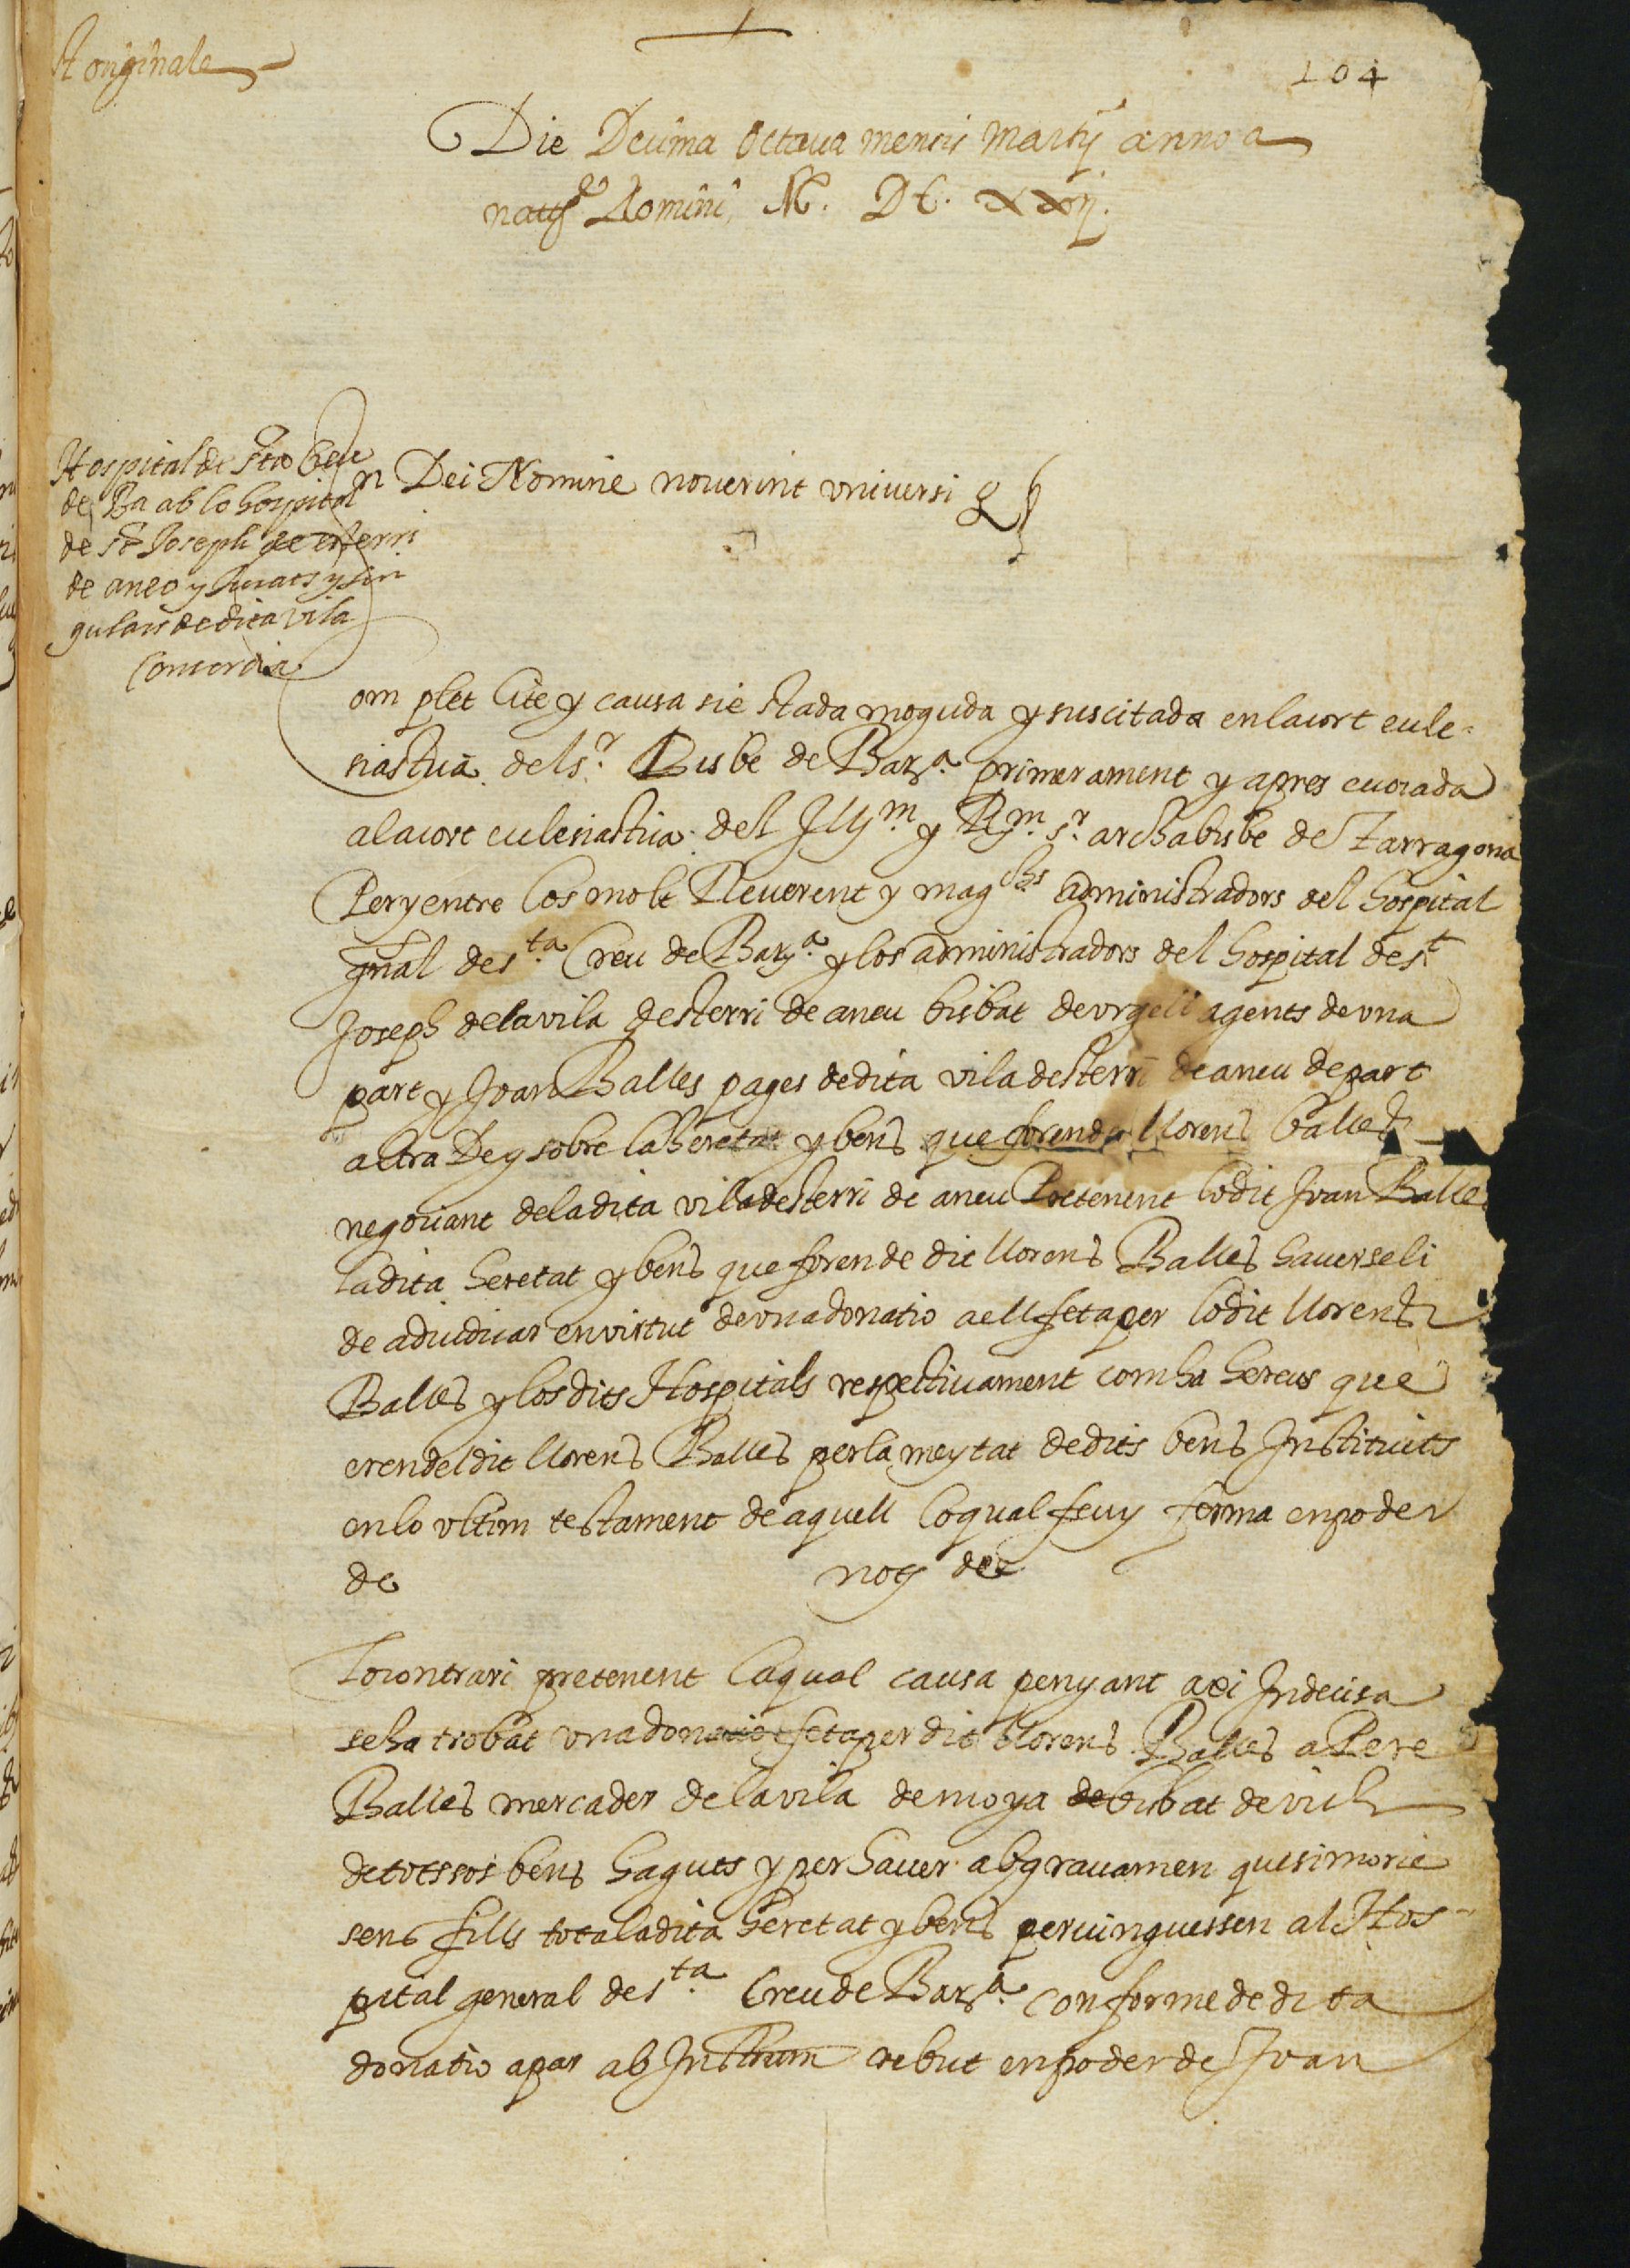 St originale
104
Die Decima Octaua mensis Martij anno a
natte Domini, M. DC. xxvij.
Hospital de sta Creu
de Ba ab lo hospital
de st Joseph de sterri
de aneo y Jurats y sin
gulars de dita vila
Concordia
n Dei Nomine nouerint vniuersi &
om plet lite y causa sie stada moguda y suscitada en la cort eccle-
siastica del sr. Bisbe de Barª. primerament y apres euocada
a la cort ecclesiastica del Illm. y Rm. sr. archabisbe de Tarragona
Per y entre los molt Reuerent y magchs administradors del hospital
gnal de sta. Creu de Barª. y los administradors del hospital de st
Joseph de la vila de sterri de aneu bisbat de vrgell agents de vna
part y Joan Balles pages de dita vila de sterri de aneu de part
altra De y sobre la heretat y bens que foren de llorens balles
negociant de la dita vila de sterri de aneu Pretenent lo dit Joan Balle
la dita heretat y bens que foren de dit llorens Balles hauerseli
de adiudicar en virtut de vna donatio a ell feta per lo dit llorens
Balles y los dits Hospitals respectiuament com ha hereus que
eren del dit llorens Balles per la meytat de dits bens Instituits
en lo vltim testament de aquell lo qual feu y ferma en poder
de noy de
Lo contrari pretenent la qual causa penyant axi Indecisa
se ha trobat vna donatio feta per dit llorens Balles a Pere
Balles mercader de la vila de moya de bisbat de vich
de tots sos bens haguts y per hauer ab grauamen que si morie
sens fills tota la dita heretat y bens peruinguessen al Hos-
pital general de sta. Creu de Barª. conforme de dita
donatio apar ab Instrum rebut en poder de Joan